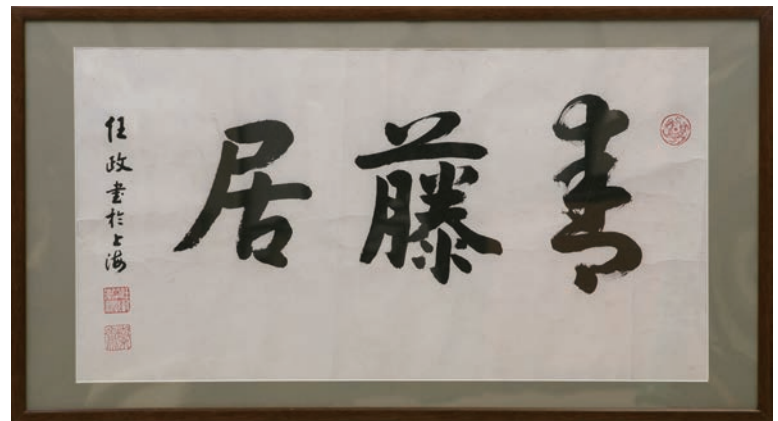 青藤居
任政書於上海